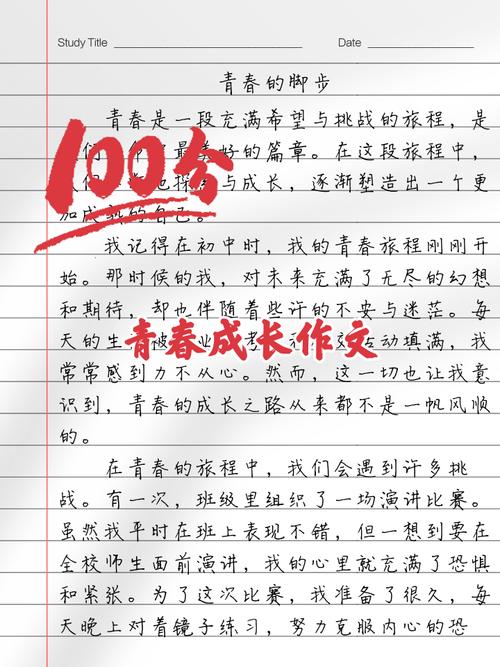 Study Title
Date
青春的脚步
青春是一段充满希望与挑战的旅程，是
最美好的篇章。在这段旅程中，
与成长，逐渐塑造出一个更
加成熟的自己。
100分
我记得在初中时，我的青春旅程刚刚开
始。那时候的我，对未来充满了无尽的幻想
和期待，却也伴随着些许的不安与迷茫。每
天的生被业考活动填满，我
青春成长作文
常常感到力不从心。然而，这一切也让我意
识到，青春的成长之路从来都不是一帆风顺
的。
在青春的旅程中，我们会遇到许多挑
战。有一次，班级里组织了一场演讲比赛。
虽然我平时在班上表现不错，但一想到要在
全校师生面前演讲，我的心里就充满了恐惧
和紧张。为了这次比赛，我准备了很久，每
天晚上对着镜子练习，努力克服内心的恐